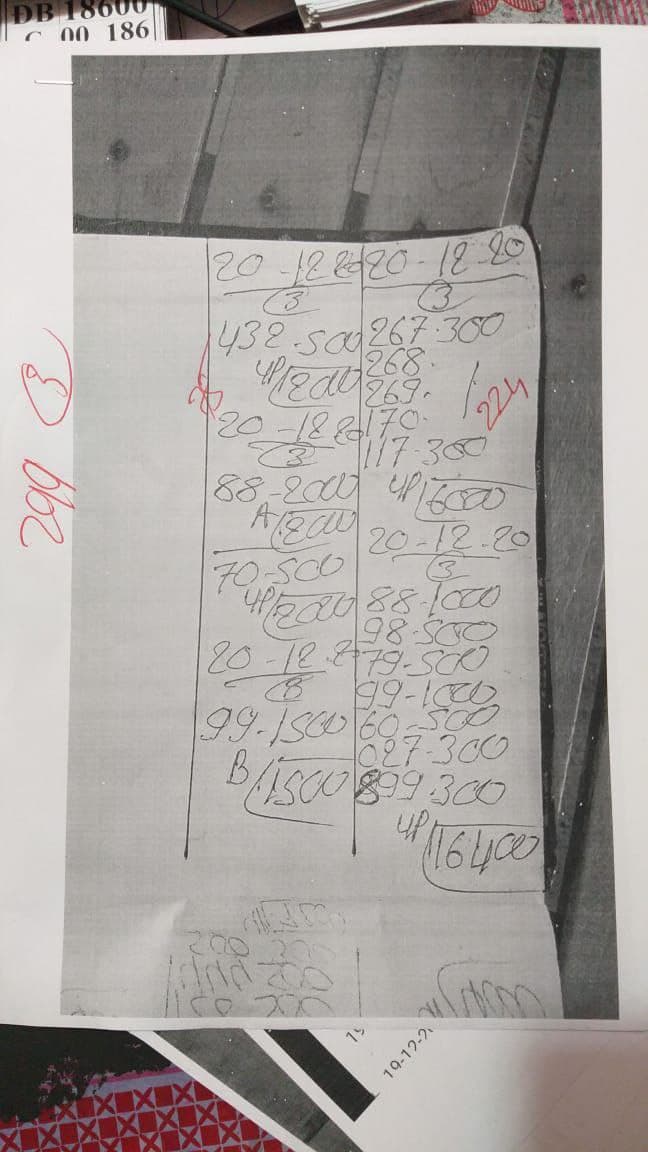 DB 18600
00 186
299 ③
20-12-20
③
432-500
4P/2000
25
20-12-20
③
88-2000
A/2000
70-500
4P/2000
20-12-20
③
99-1500
B/1500
20-12-20
③
267-300
268-
269-
170-
117-300
224
4P/6000
20-12-20
③
88-1000
98-500
79-500
99-1000
60-500
027-300
899-300
4P/16400
19-12-2